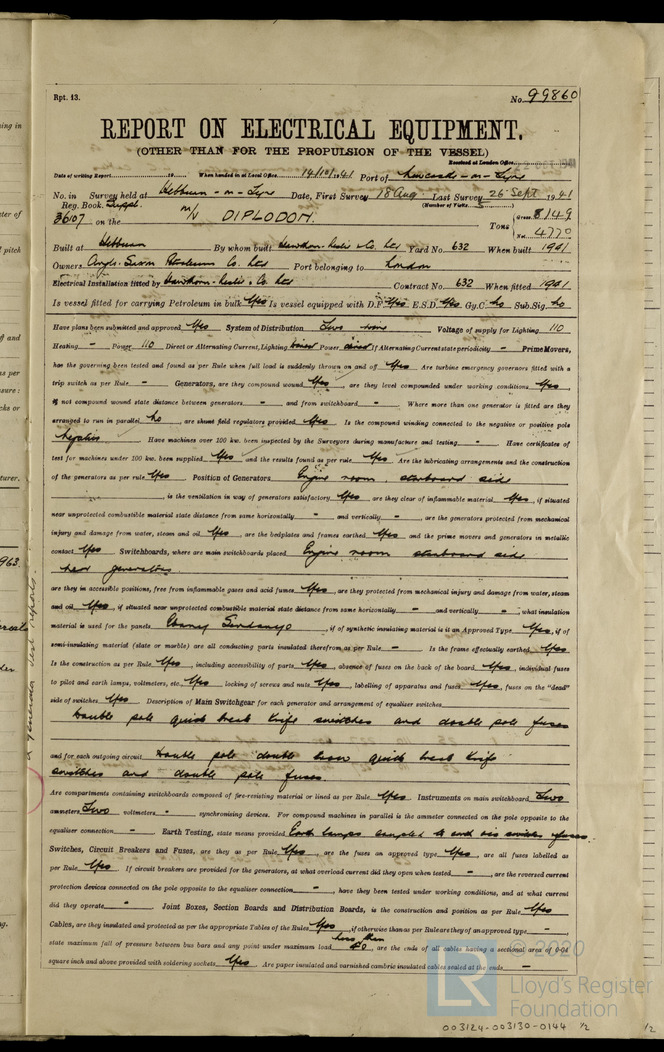 Rpt. 13.
No. 99860
REPORT ON ELECTRICAL EQUIPMENT.
(OTHER THAN FOR THE PROPULSION OF THE VESSEL)
Received at London Office
Date of writing Report 19 When handed in at Local Office 14/10/1941 Port of Newcastle-on-Tyne
No. in Survey held at Hebburn-on-Tyne Date, First Survey 18 Aug Last Survey 26 Sept 1941
Reg. Book. Suppl. (Number of Visits
36107 on the M/V DIPLODON. Tons { Gross 8149
Net 4770
Built at Hebburn By whom built Hawthorn Leslie & Co. Ltd Yard No. 632 When built 1941
Owners Anglo-Saxon Petroleum Co. Ltd Port belonging to London
Electrical Installation fitted by Hawthorn Leslie & Co. Ltd Contract No. 632 When fitted 1941
Is vessel fitted for carrying Petroleum in bulk Yes Is vessel equipped with D.F. Yes E.S.D. Yes Gy.C. No Sub.Sig. No
Have plans been submitted and approved Yes System of Distribution Two wire Voltage of supply for Lighting 110
Heating - Power 110 Direct or Alternating Current, Lighting Direct Power Direct If Alternating Current state periodicity - Prime Movers,
has the governing been tested and found as per Rule when full load is suddenly thrown on and off Yes Are turbine emergency governors fitted with a
trip switch as per Rule - Generators, are they compound wound Yes, are they level compounded under working conditions Yes,
if not compound wound state distance between generators - and from switchboard - Where more than one generator is fitted are they
arranged to run in parallel No, are shunt field regulators provided Yes Is the compound winding connected to the negative or positive pole
Negative Have machines over 100 kw. been inspected by the Surveyors during manufacture and testing - Have certificates of
test for machines under 100 kw. been supplied Yes and the results found as per rule Yes Are the lubricating arrangements and the construction
of the generators as per rule Yes Position of Generators Engine room, starboard side
, is the ventilation in way of generators satisfactory Yes, are they clear of inflammable material Yes, if situated
near unprotected combustible material state distance from same horizontally - and vertically -, are the generators protected from mechanical
injury and damage from water, steam and oil Yes, are the bedplates and frames earthed Yes and the prime movers and generators in metallic
contact Yes Switchboards, where are main switchboards placed Engine room starboard side
near generators
are they in accessible positions, free from inflammable gases and acid fumes Yes, are they protected from mechanical injury and damage from water, steam
and oil Yes, if situated near unprotected combustible material state distance from same horizontally - and vertically -, what insulation
material is used for the panels Ebony Sindanyo, if of synthetic insulating material is it an Approved Type Yes, if of
semi-insulating material (slate or marble) are all conducting parts insulated therefrom as per Rule - Is the frame effectually earthed Yes
Is the construction as per Rule Yes, including accessibility of parts Yes, absence of fuses on the back of the board Yes, individual fuses
to pilot and earth lamps, voltmeters, etc. Yes, locking of screws and nuts Yes, labelling of apparatus and fuses Yes, fuses on the "dead"
side of switches Yes Description of Main Switchgear for each generator and arrangement of equaliser switches
Double pole quick break knife switches and double pole fuses
and for each outgoing circuit Double pole double throw quick break knife
switches and double pole fuses.
Are compartments containing switchboards composed of fire-resisting material or lined as per Rule Yes Instruments on main switchboard Two
ammeters Two voltmeters - synchronising devices. For compound machines in parallel is the ammeter connected on the pole opposite to the
equaliser connection - Earth Testing, state means provided Earth lamps coupled to earth via switches & fuses
Switches, Circuit Breakers and Fuses, are they as per Rule Yes, are the fuses an approved type Yes, are all fuses labelled as
per Rule Yes If circuit breakers are provided for the generators, at what overload current did they open when tested -, are the reversed current
protection devices connected on the pole opposite to the equaliser connection -, have they been tested under working conditions, and at what current
did they operate - Joint Boxes, Section Boards and Distribution Boards, is the construction and position as per Rule Yes
Cables, are they insulated and protected as per the appropriate Tables of the Rules Yes, if otherwise than as per Rule are they of an approved type -,
state maximum fall of pressure between bus bars and any point under maximum load less than, are the ends of all cables having a sectional area of 0·04
square inch and above provided with soldering sockets Yes Are paper insulated and varnished cambric insulated cables sealed at the ends -
© 2020
LR
Lloyd's Register
Foundation
003124-003130-0144 1/2